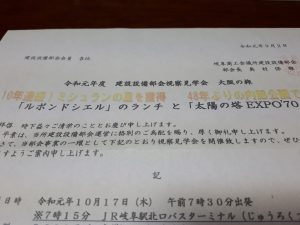 令和元年9月2日
建設設備部会会員 各位
岐阜商工会議所建設設備部会
部会長
令和元年度 建設設備部会視察見学会 大阪の旅
10年連続!ミシュランの星を獲得 48年ぶりの内部公開で
「ルポンドシエル」のランチ と 「太陽の塔 EXPO'70
拝啓 時下益々ご清栄のこととお慶び申し上げます。
平素は、当所建設設備部会運営に格別のご高配を賜り、厚く御礼申し上げます。
さて、当部会事業の一環として下記のとおり視察見学会を開催致しますので、ぜひ
ますようご案内申し上げます。
記
日 時 令和元年10月17日(木) 午前7時30分出発
※7時15分 JR岐阜駅北口バスターミナル(じゅうろくプ